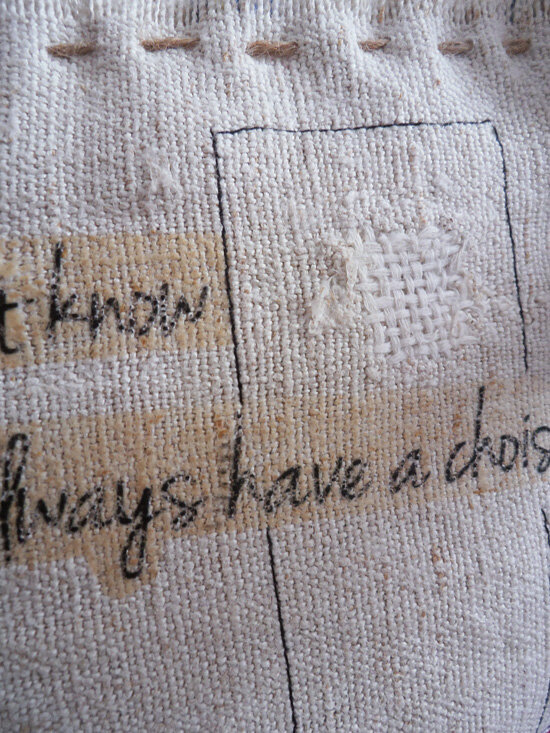 t know
Always have a chois